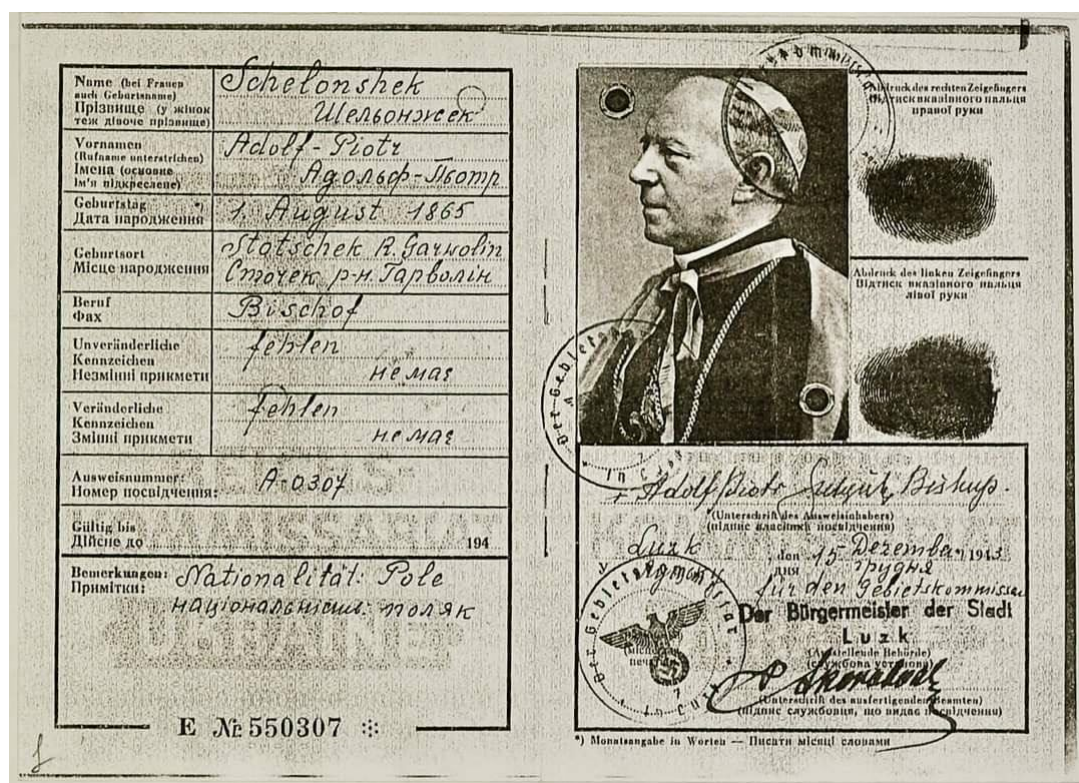 Name (bei Frauen
auch Geburtsname)
Прізвище (у жінок
теж дівоче прізвище)
Schelonshek
Шельонжек
Vornamen
(Rufname unterstrichen)
Імена (основне
ім'я підкреслене)
Adolf-Piotr
Адольф-Пйотр
Geburtstag *)
Дата народження
1. August 1865
Geburtsort
Місце народження
Stotschek R. Garwolin
Сточек р-н. Гарволін
Beruf
Фах
Bischof
Unveränderliche
Kennzeichen
Незмінні прикмети
fehlen
немає
Veränderliche
Kennzeichen
Змінні прикмети
fehlen
немає
Ausweisnummer:
Номер посвідчення:
A-0307
Gültig bis
Дійсне до
194
Bemerkungen:
Примітки:
Nationalität: Pole
національність: поляк
REICHS
KOMMISSARIAT
UKRAINE
E № 550307
Abdruck des rechten Zeigefingers
Відтиск вказівного пальця
правої руки
Abdruck des linken Zeigefingers
Відтиск вказівного пальця
лівої руки
Der Gebiets
in
+ Adolf Piotr Biskup.
(Unterschrift des Ausweisinhabers)
(підпис власника посвідчення)
Luzk
den 15 Dezember 1943
дня грудня
für den Gebietskommissar
Der Bürgermeister der Stadt
Luzk
(Ausstellende Behörde)
(службова установа)
Der Gebietskommissar
(Unterschrift des ausfertigenden Beamten)
(підпис службовця, що видає посвідчення)
*) Monatsangabe in Worten — Писати місяці словами